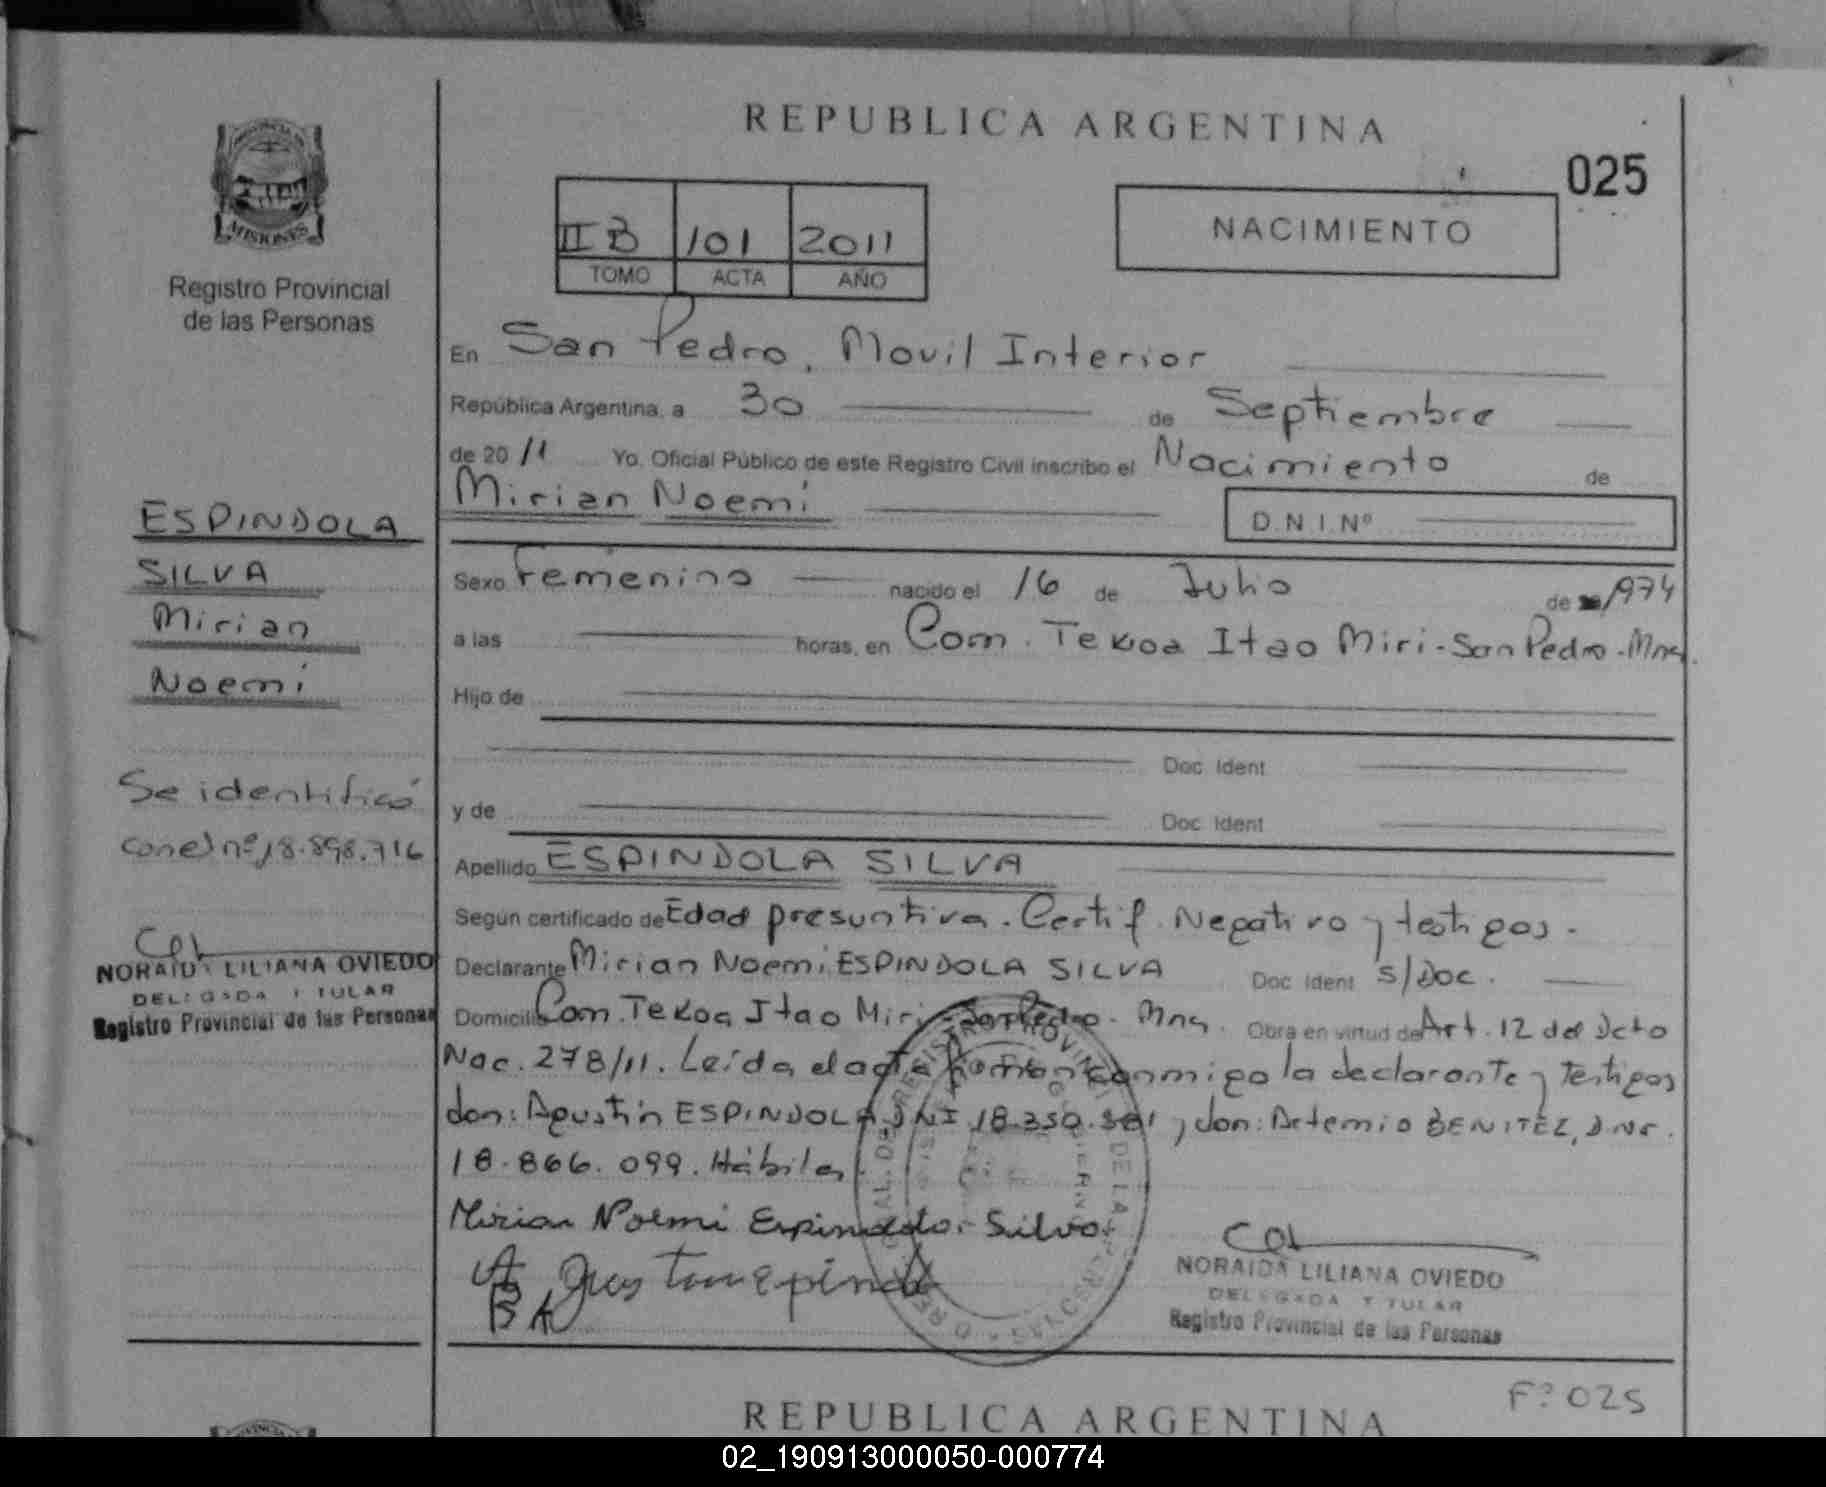 REPUBLICA ARGENTINA
025
MISIONES
Registro Provincial
de las Personas
II B 101 2011
TOMO ACTA AÑO
NACIMIENTO
En San Pedro, Movil Interior
República Argentina, a 30 de Septiembre
de 2011 Yo, Oficial Público de este Registro Civil inscribo el Nacimiento de
Mirian Noemi
D.N.I.Nº
ESPINDOLA
SILVA
Mirian
Noemi
Sexo Femenino nacido el 16 de Julio de 1974
a las horas, en Com. Tekoa Itao Miri - San Pedro - Mns.
Hijo de
Doc. Ident
y de
Doc. Ident
Se identificó
con el nº 18.898.716
Apellido ESPINDOLA SILVA
Según certificado de Edad presuntiva. Certif. Negativo y testigos.
Declarante Mirian Noemi ESPINDOLA SILVA Doc Ident s/Doc.
NORAIDA LILIANA OVIEDO
DELEGADA TITULAR
Registro Provincial de las Personas
Domicilio Com. Tekoa Itao Miri - San Pedro - Mns. Obra en virtud de Art. 12 del Dcto
Nac. 278/11. Leída el acta firman conmigo la declarante y testigos
don: Agustin ESPINDOLA DNI 18.350. y don: Artemio BENITEZ, DNI.
18.866.099. Hábiles
Mirian Noemi Espindola Silva
BA
NORAIDA LILIANA OVIEDO
DELEGADA TITULAR
Registro Provincial de las Personas
Fº 025
REPUBLICA ARGENTINA
02_190913000050-000774